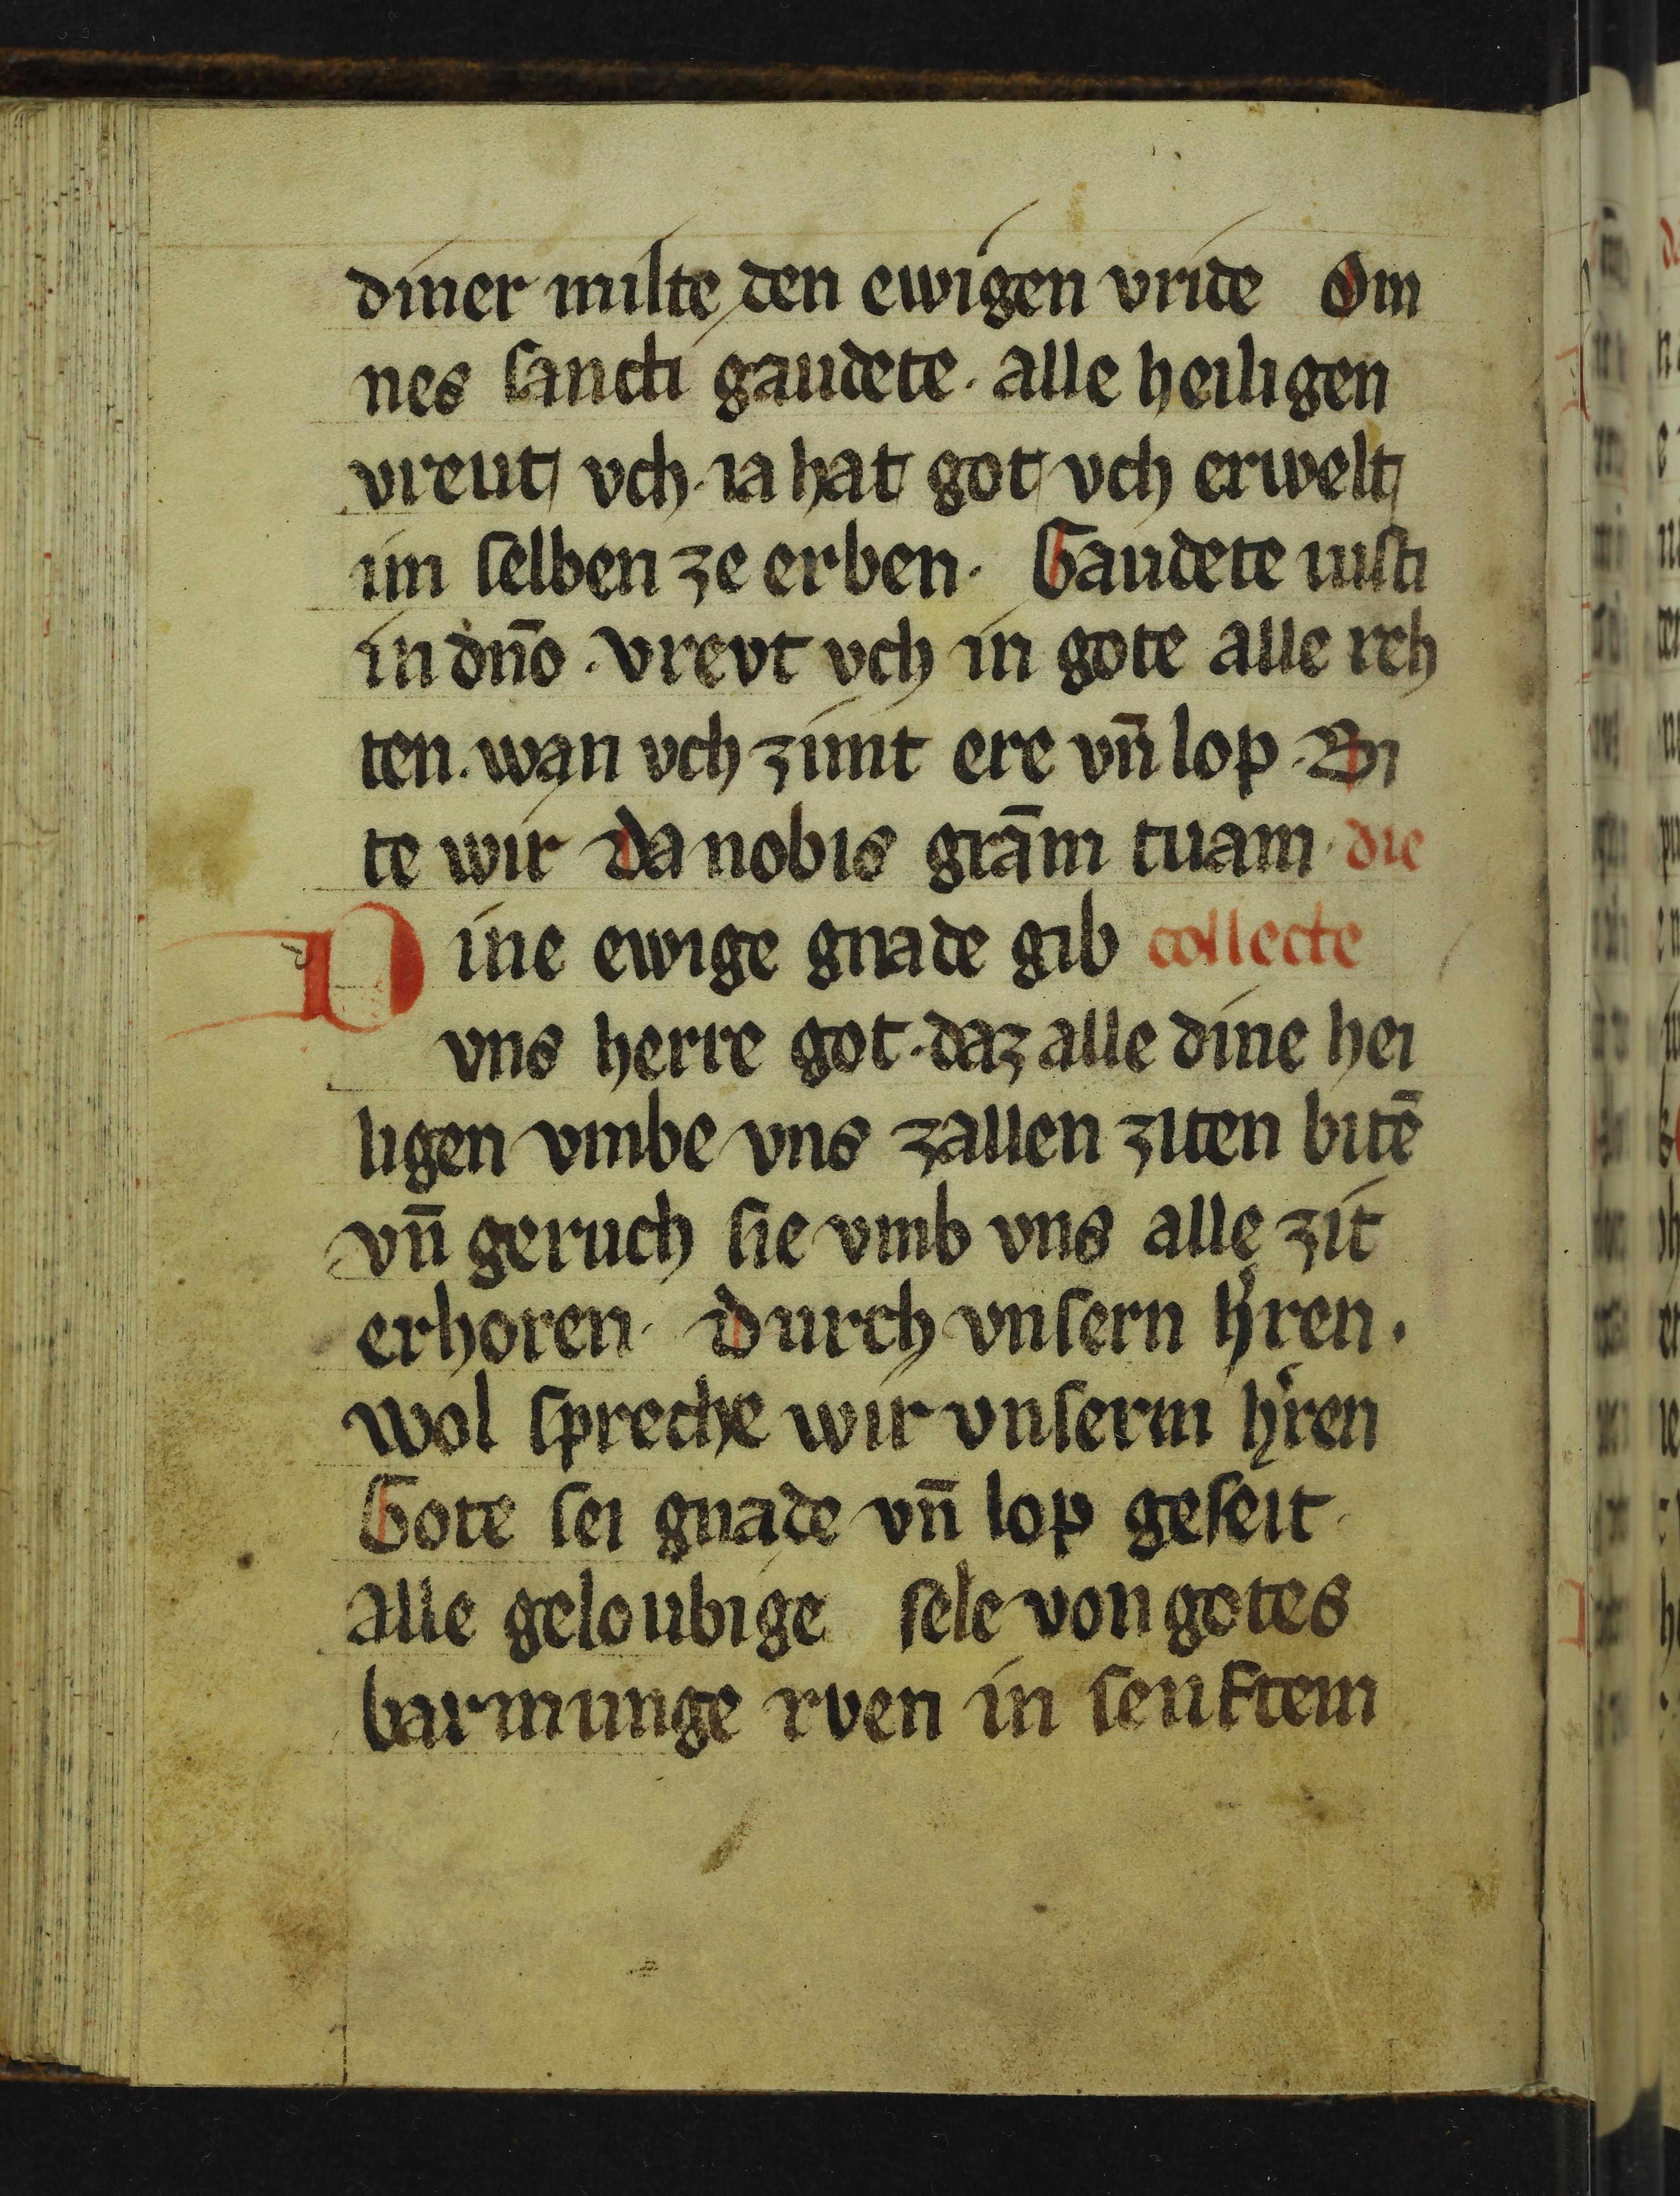 diner milte den ewigen vride Om
nes sancti gaudete. alle heiligen
vreut vch. ia hat got vch erwelt
im selben ze erben. Gaudete iusti
in dn̄o. vrevt vch in gote alle reh
ten. wan vch zimt ere vn̄ lop. Bi
te wir da nobis grām tuam. die
Dine ewige gnade gib collecte
vns herre got. daz alle dine hei
ligen vmbe vns zallen ziten bitē
vn̄ geruch sie vmb vns alle zit
erhoren. durch vnsern h'ren.
wol spreche wir vnserm h'ren
Gote sei gnade vn̄ lop geseit.
alle geloubige sele von gotes
barmunge rven in senftem